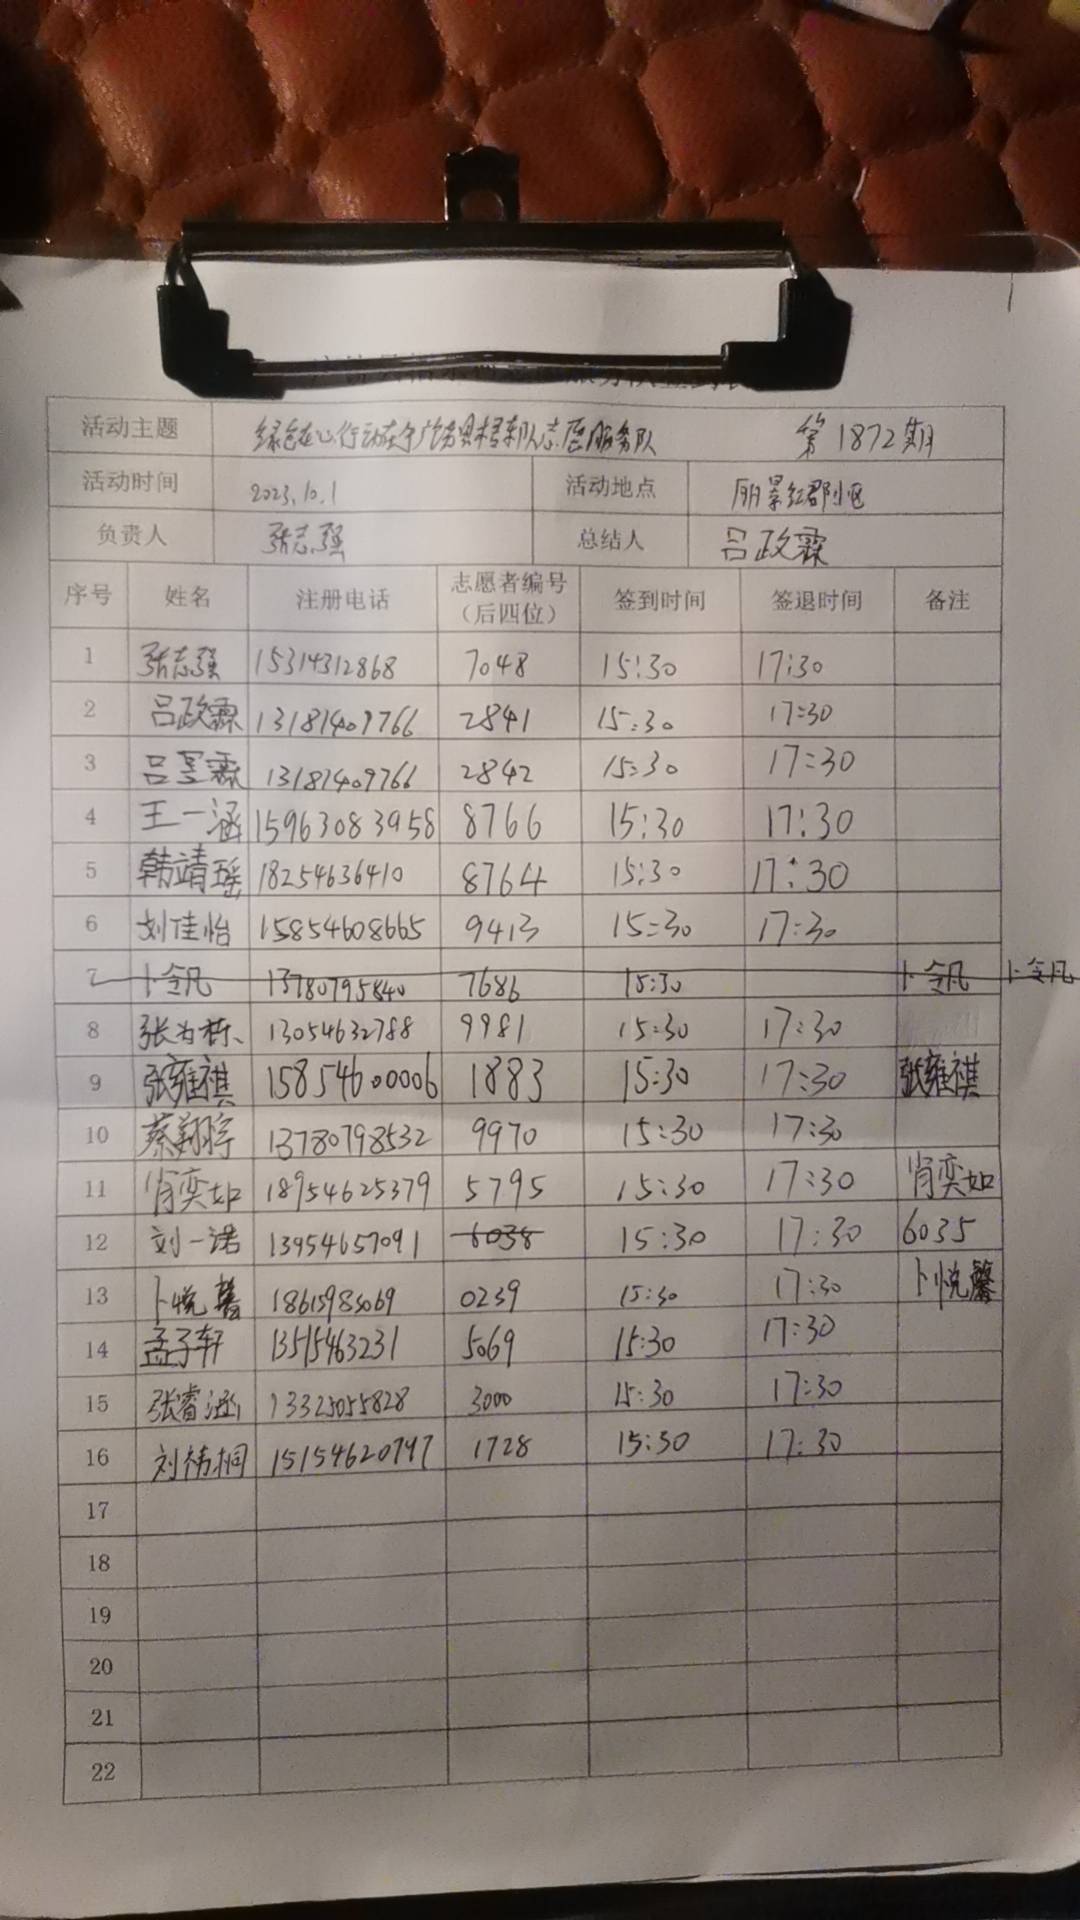 活动主题 绿色在心行动在手广饶县梧桑队志愿服务队 第1872期
活动时间 2023.10.1 活动地点 丽景红郡小区
负责人 张志强 总结人 吕政霖
序号 姓名 注册电话 志愿者编号（后四位） 签到时间 签退时间 备注
1 张志强 15314312868 7048 15:30 17:30
2 吕政霖 13181409766 2841 15:30 17:30
3 吕昱霖 13181409766 2842 15:30 17:30
4 王一涵 15963083958 8766 15:30 17:30
5 韩靖瑶 18254636410 8764 15:30 17:30
6 刘佳怡 15854608665 9413 15:30 17:30
7 卜令凡 13780795840 7686 15:30 卜令凡 卜令凡
8 张为栋 13054632788 9981 15:30 17:30
9 张雍祺 15854600006 1883 15:30 17:30 张雍祺
10 蔡翔宇 13780798532 9970 15:30 17:30
11 肖奕如 18954625379 5795 15:30 17:30 肖奕如
12 刘一诺 13954657091 6038 15:30 17:30 6035
13 卜悦馨 18615985069 0239 15:30 17:30 卜悦馨
14 孟子轩 13515463231 5069 15:30 17:30
15 张睿涵 13325055828 3000 15:30 17:30
16 刘祎桐 15154620797 1728 15:30 17:30
17
18
19
20
21
22